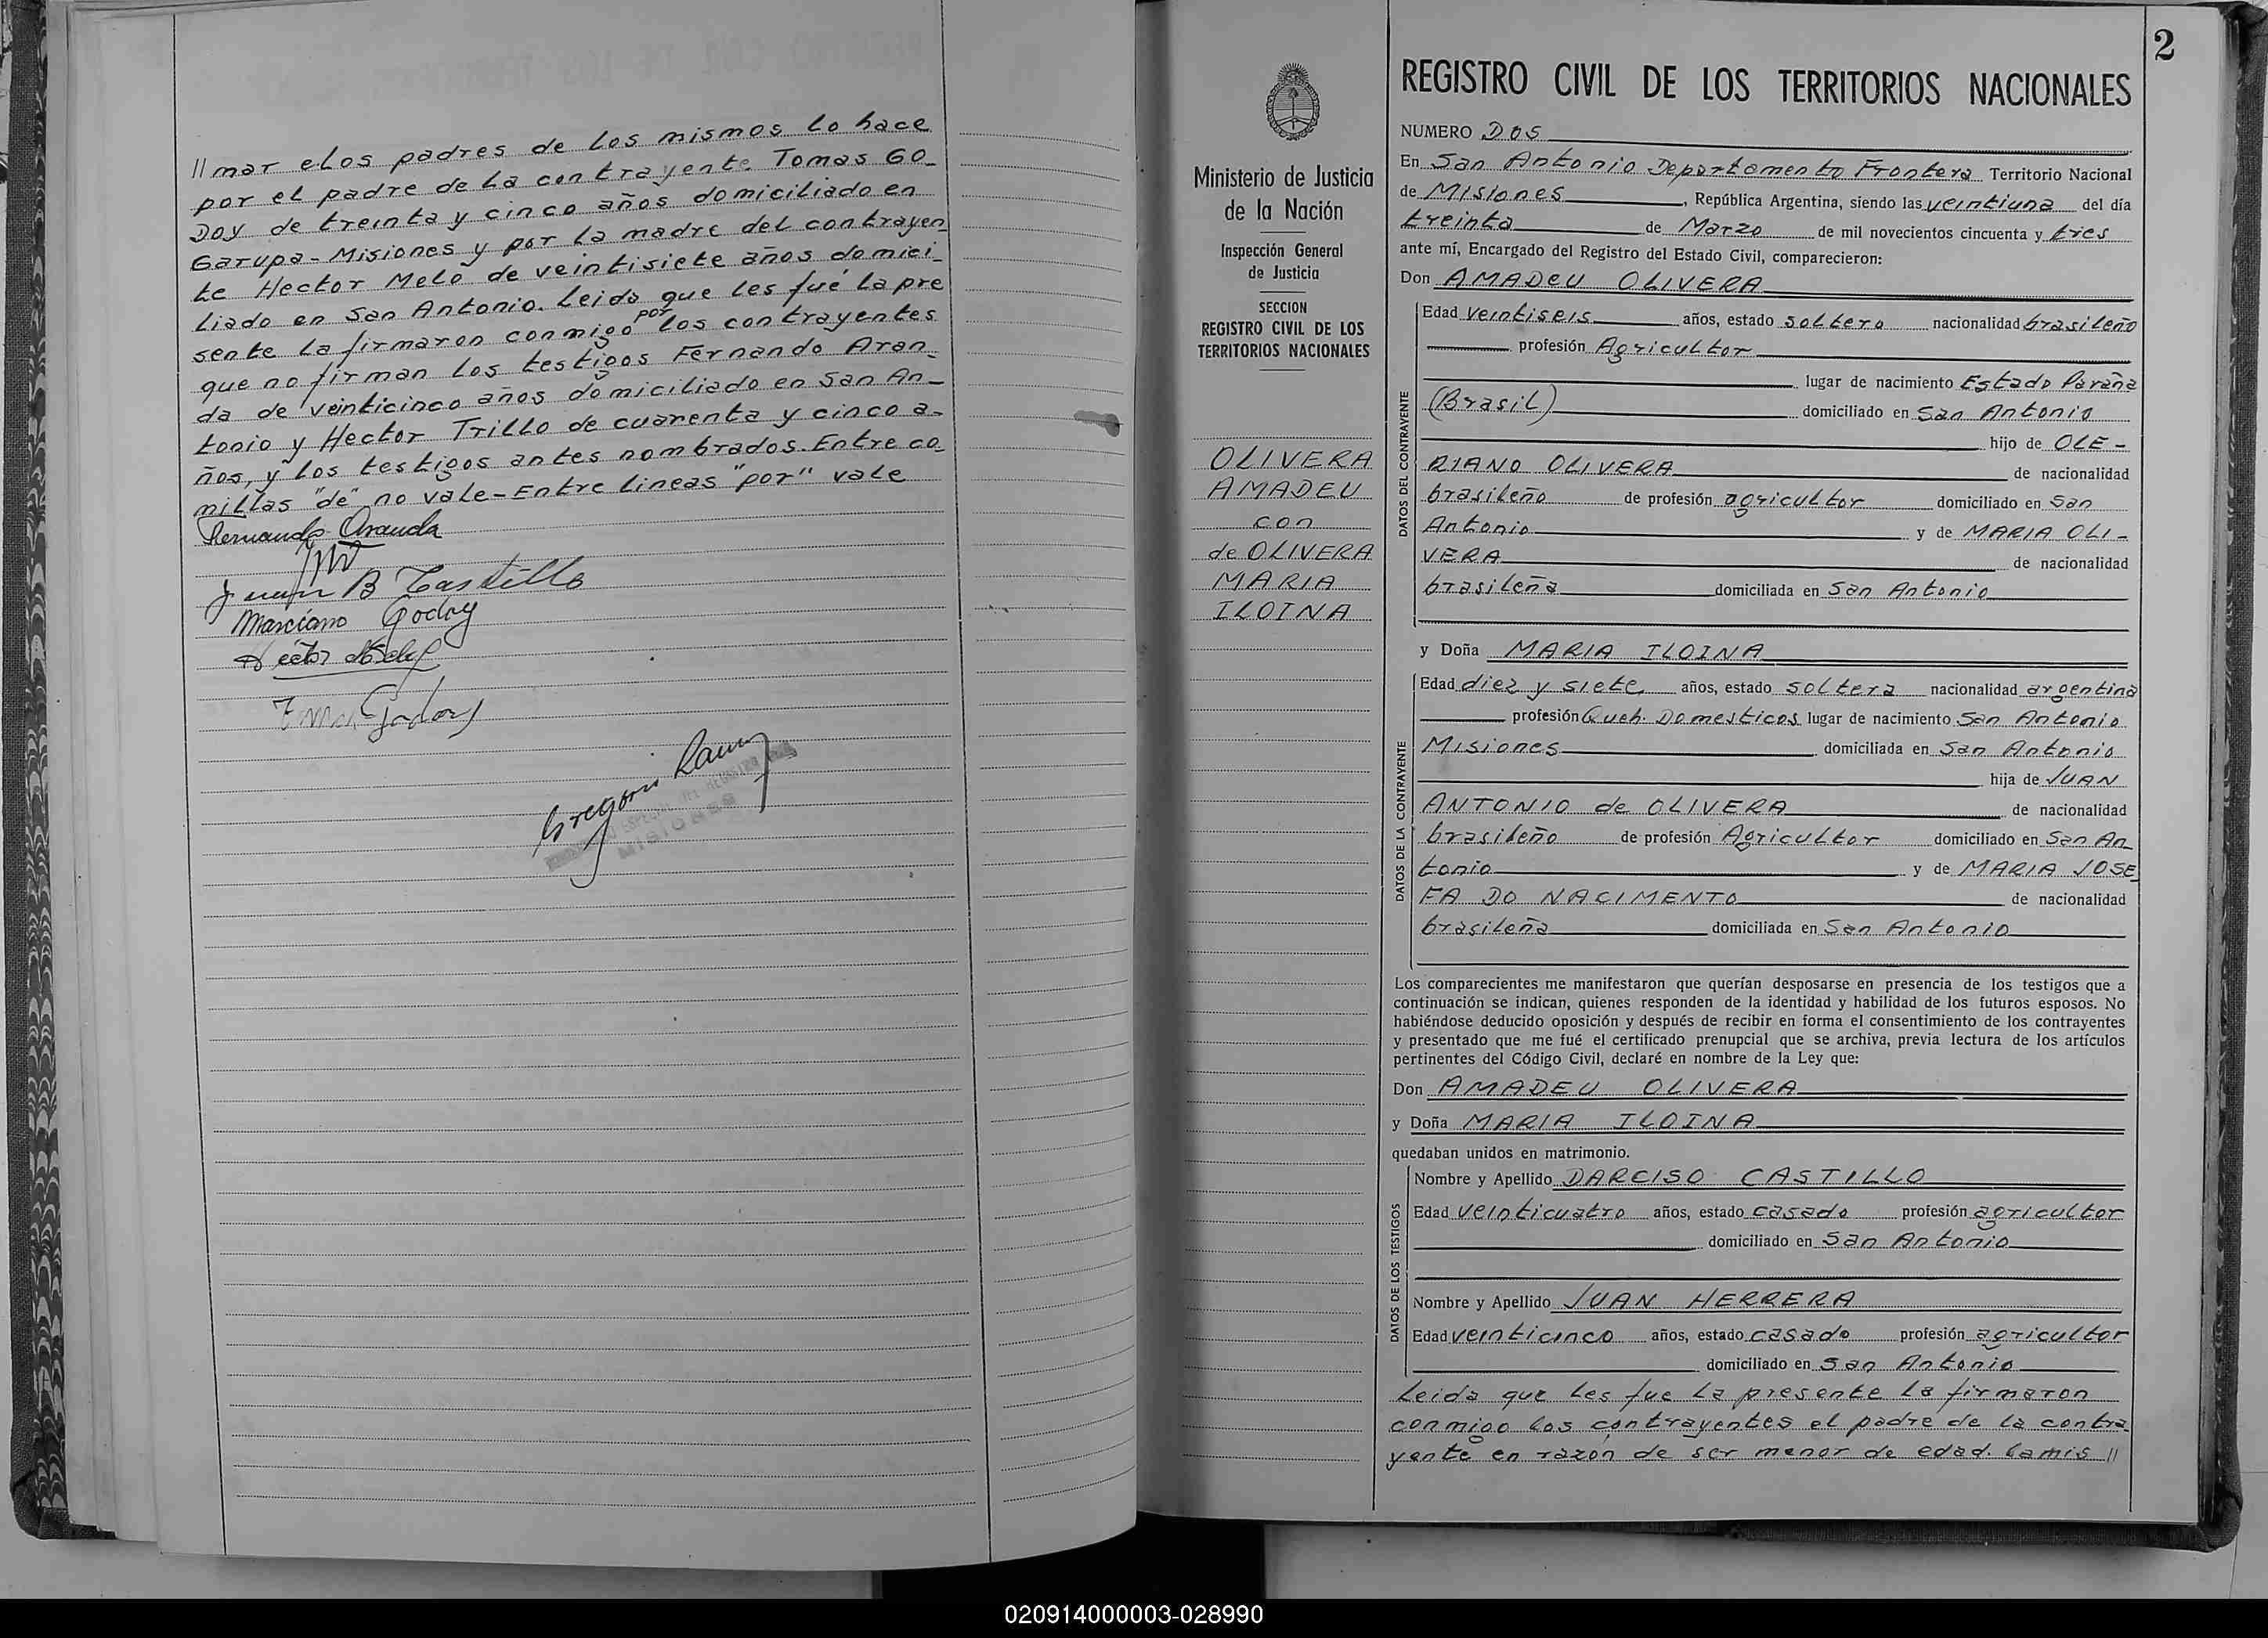 // mar elos padres de los mismos lo hace
por el padre de la contrayente Tomas Go_
Doy de treinta y cinco años domiciliado en
Garupa - Misiones y por la madre del contrayen_
te Hector Melo de veintisiete años domici_
liado en San Antonio. Leida que les fué la pre
sente la firmaron conmigo por los contrayentes
que no firman los testigos Fernando Aran_
da de veinticinco años domiciliado en San An_
tonio y Hector Trillo de cuarenta y cinco a-
ños, y los testigos antes nombrados. Entre co_
millas "de" no vale - Entre lineas "por" vale
Fernando Aranda
Juan B Castillo
Marciano Godoy
Héctor Melo
Godoy
Gregorio
MISIONES
2
Ministerio de Justicia
de la Nación
Inspección General
de Justicia
SECCION
REGISTRO CIVIL DE LOS
TERRITORIOS NACIONALES
OLIVERA
AMADEU
con
de OLIVERA
MARIA
ILOINA
REGISTRO CIVIL DE LOS TERRITORIOS NACIONALES
NUMERO DOS
En San Antonio Departamento Frontera Territorio Nacional
de Misiones, República Argentina, siendo las veintiuna del día
treinta de Marzo de mil novecientos cincuenta y tres
ante mí, Encargado del Registro del Estado Civil, comparecieron:
Don AMADEU OLIVERA
DATOS DEL CONTRAYENTE
Edad veintiseis años, estado soltero nacionalidad brasileño
profesión Agricultor
lugar de nacimiento Estado Paraña
(Brasil) domiciliado en San Antonio
hijo de OLE-
RIANO OLIVERA de nacionalidad
brasileño de profesión agricultor domiciliado en San
Antonio y de MARIA OLI-
VERA de nacionalidad
brasileña domiciliada en San Antonio
y Doña MARIA ILOINA
DATOS DE LA CONTRAYENTE
Edad diez y siete años, estado soltera nacionalidad argentina
profesión Queh. Domesticos lugar de nacimiento San Antonio
Misiones domiciliada en San Antonio
hija de JUAN
ANTONIO de OLIVERA de nacionalidad
brasileño de profesión Agricultor domiciliado en San An_
tonio y de MARIA JOSE_
FA DO NACIMENTO de nacionalidad
brasileña domiciliada en San Antonio
Los comparecientes me manifestaron que querían desposarse en presencia de los testigos que a
continuación se indican, quienes responden de la identidad y habilidad de los futuros esposos. No
habiéndose deducido oposición y después de recibir en forma el consentimiento de los contrayentes
y presentado que me fué el certificado prenupcial que se archiva, previa lectura de los artículos
pertinentes del Código Civil, declaré en nombre de la Ley que:
Don AMADEU OLIVERA
y Doña MARIA ILOINA
quedaban unidos en matrimonio.
DATOS DE LOS TESTIGOS
Nombre y Apellido DARCISO CASTILLO
Edad veinticuatro años, estado casado profesión agricultor
domiciliado en San Antonio
Nombre y Apellido JUAN HERRERA
Edad veinticinco años, estado casado profesión agricultor
domiciliado en San Antonio
Leida que les fue la presente la firmaron
conmigo los contrayentes el padre de la contra_
yente en razón de ser menor de edad. la mis //
020914000003-028990